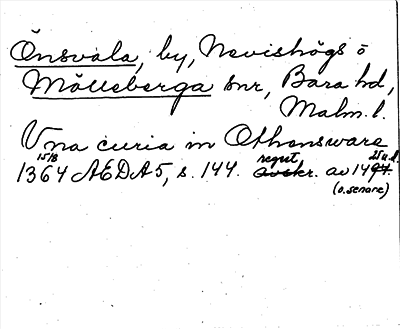 Önsvala, by, Nevishögs o
Mölleberga snr, Bara hd,
Malm. l.
Vna curia in Othensware
15/8 1364 ÆDA 5, s. 144. regest avskr. av 1494.
(o. senare)